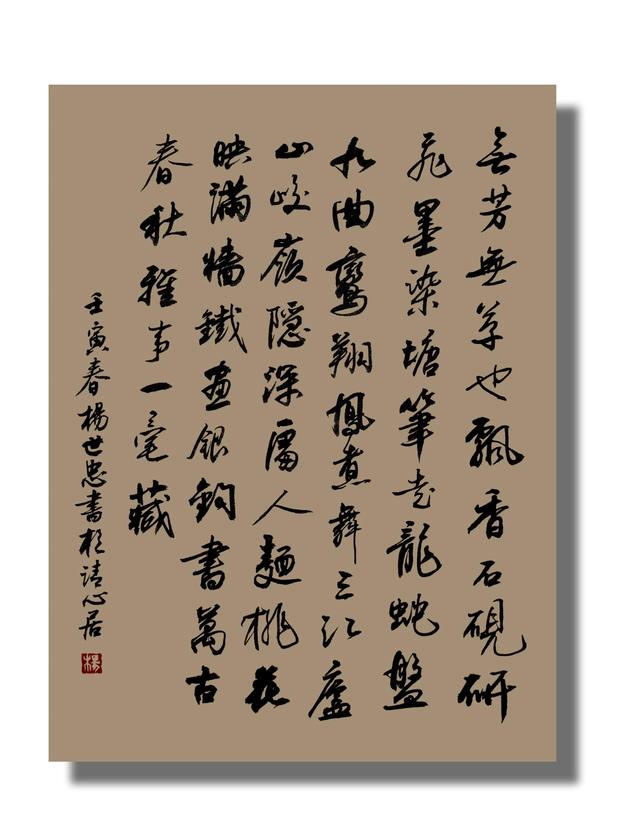 無芳無草也飄香石硯研
飛墨染塘筆走龍蛇盤
九曲鸞翔鳳煮舞三江廬
山峻嶺隱深處人麵桃花
映滿牆鐵畫銀鈎書萬古
春秋雅事一毫藏
壬寅春楊世忠書於清心居
楊